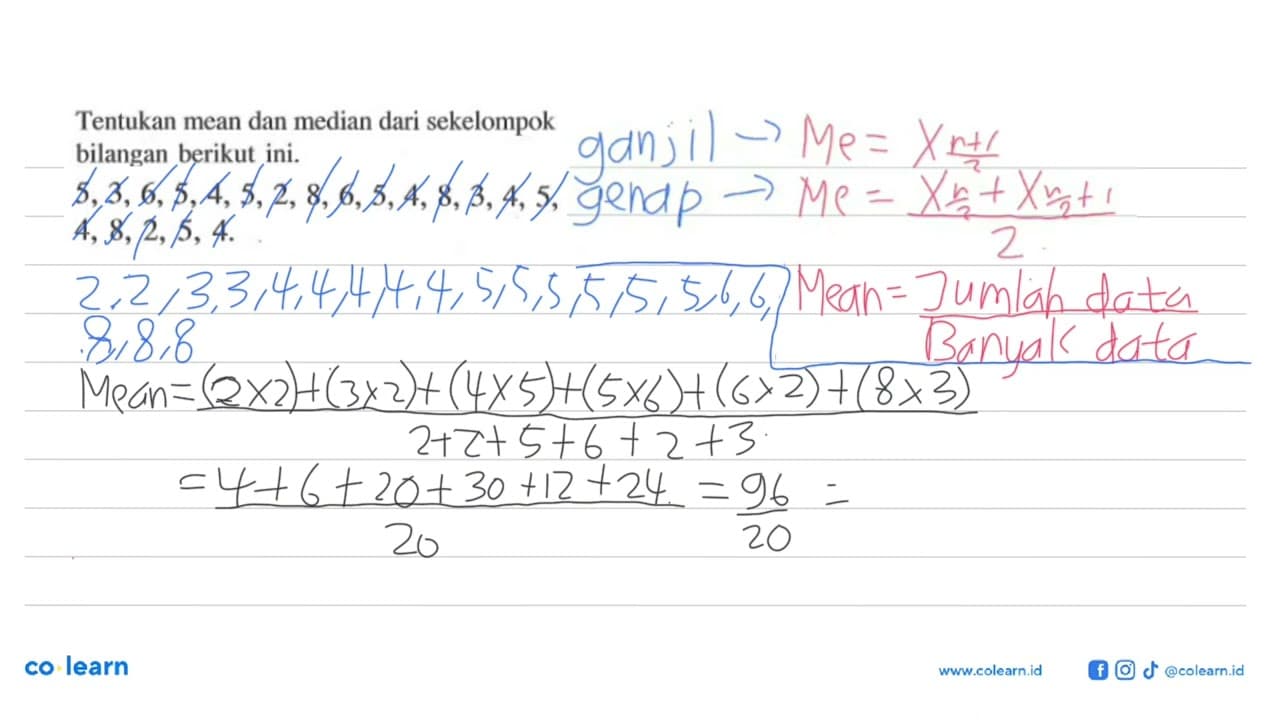 Tentukan mean dan median dari sekelompok
bilangan berikut ini.
5, 3, 6, 5, 4, 5, 2, 8, 6, 5, 4, 8, 3, 4, 5,
4, 8, 2, 5, 4.
ganjil → Me = X n+1/2
genap → Me = X n/2 + X n/2 + 1 / 2
2, 2, 3, 3, 4, 4, 4, 4, 4, 5, 5, 5, 5, 5, 5, 6, 6,
8, 8, 8
Mean = Jumlah data / Banyak data
Mean = (2×2)+(3×2)+(4×5)+(5×6)+(6×2)+(8×3)
2+2+5+6+2+3
= 4+6+20+30+12+24 = 96 =
20 20
co·learn
www.colearn.id @colearn.id